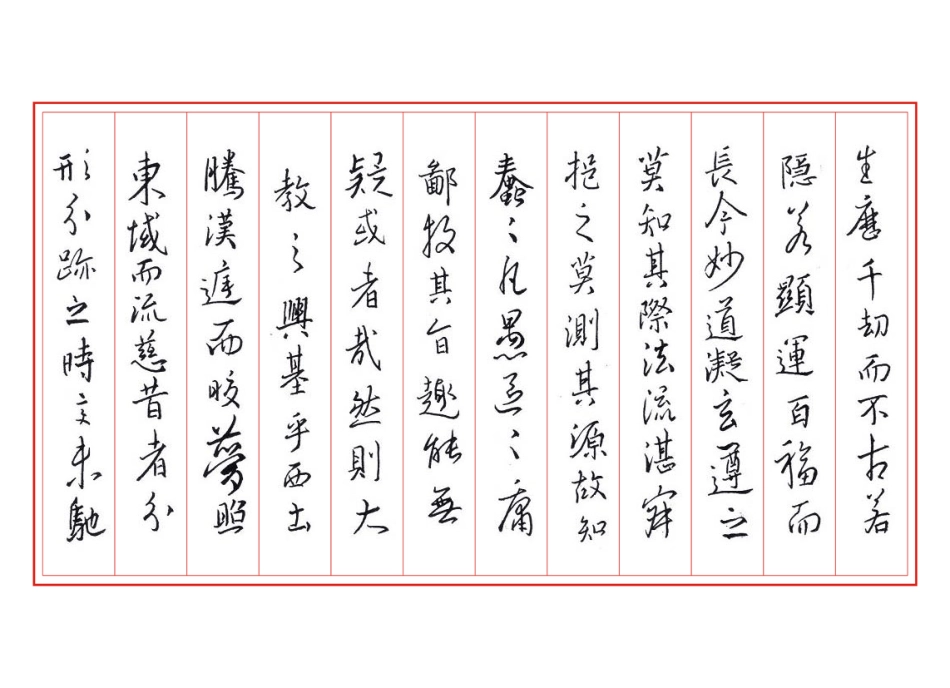 生歷千劫而不古若
隱若顯運百福而
長今妙道凝玄遵之
莫知其際法流湛寂
挹之莫測其源故知
蠢々凡愚區々庸
鄙投其旨趣能無
疑或者哉然則大
教之興基乎西土
騰漢遑而皎夢照
東域而流慈昔者分
形分跡之時言未馳